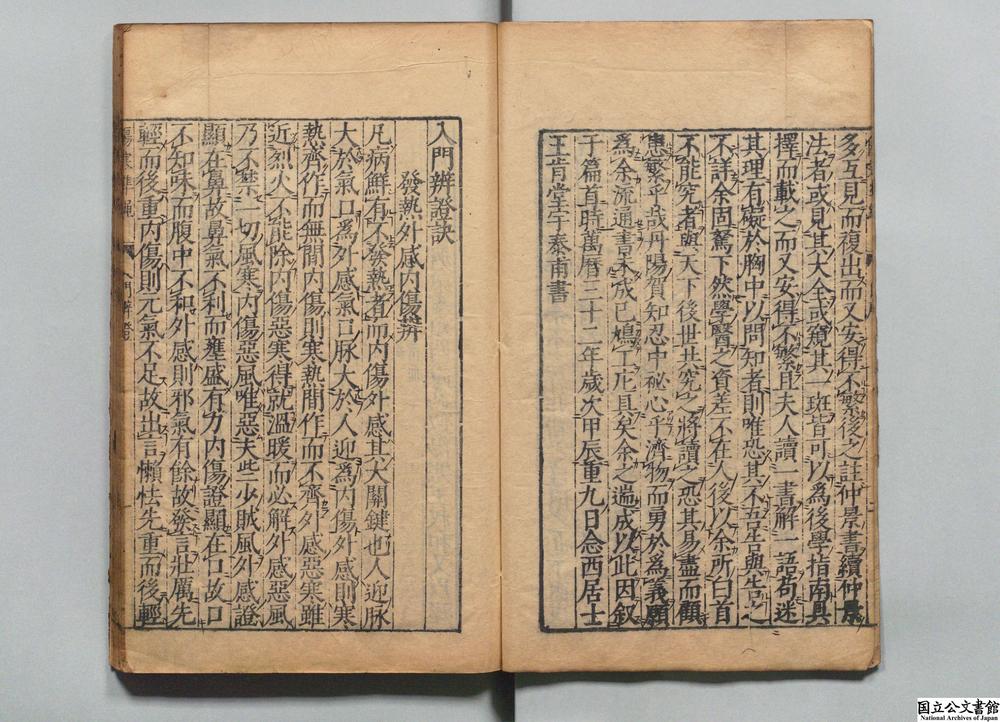 多互見而複出而又安得不繁後之註仲景書續仲景
法者或見其大全或窺其一斑皆可以為後學指南具
擇而載之而又安得不繁且夫人讀一書解一語苟迷
其理有礙於胸中以問知者則唯恐其不吾告與告之
不詳余固駑下然學醫之資差不在人後以余所白首
不能究者與天下後世共究之將讀之恐其易盡而顧
患繁乎哉丹陽賀知忍中祕心乎濟物而勇於為義願
為余流通書未成已鳩工庀具矣余之遄成以此因敘
于篇首時萬曆三十二年歲次甲辰重九日念西居士
王肯堂宇泰甫書
入門辨證訣
發熱外感內傷辨
凡病鮮有不發熱者而內傷外感其大關鍵也人迎脉
大於氣口為外感氣口脉大於人迎為內傷外感則寒
熱齊作而無間內傷則寒熱間作而不齊外感惡寒雖
近烈火不能除內傷惡寒得就溫暖而必解外感惡風
乃不禁一切風寒內傷惡風唯惡夫些少賊風外感證
顯在鼻故鼻氣不利而壅盛有力內傷證顯在口故口
不知味而腹中不和外感則邪氣有餘故發言壯厲先
輕而後重內傷則元氣不足故出言懶怯先重而後輕
国立公文書館
National Archives of Japan